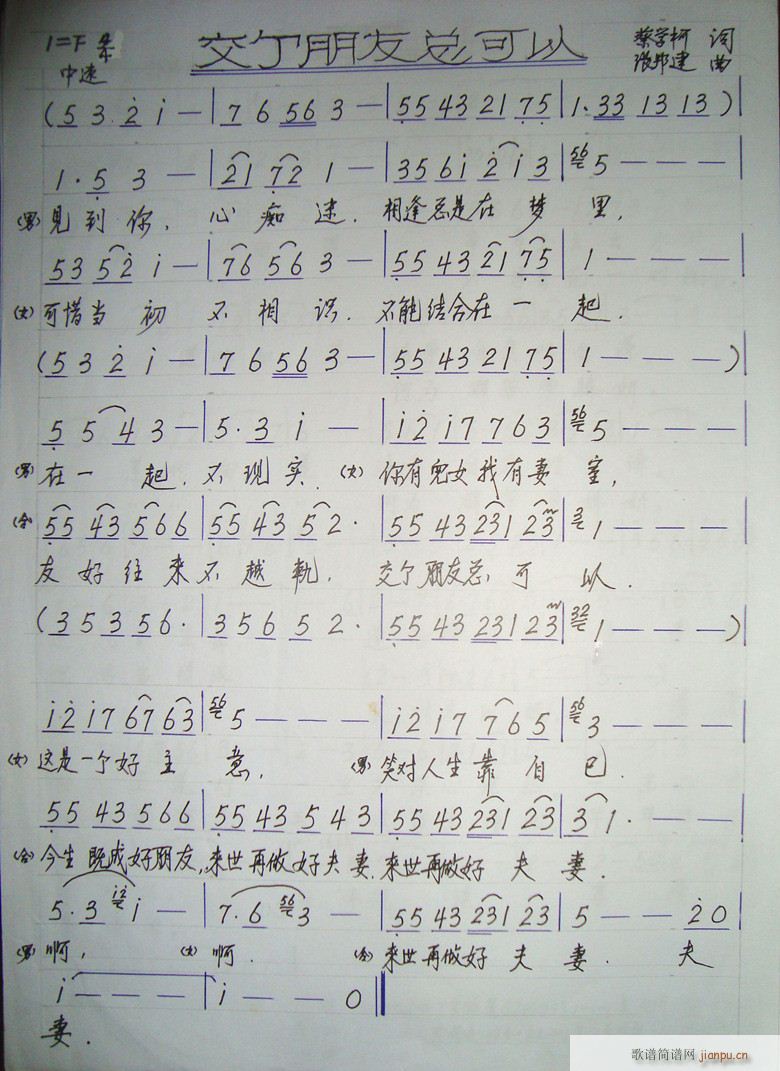 交了朋友总可以
1=F 4/4
中速
蔡学柯 词
邦建 曲
(5 3 2 i — | 7 6 56 3 — | 55 43 21 75 | 1·33 13 13 )
1·5 3 — | 21 72 1 — | 356i 2i3 | 56 5 — — —
(男)见到你,心痴迷.相逢总是在梦里,
53 52 i — | 76 56 3 — | 55 43 21 75 | 1 — — —
(女)可惜当初不相识.不能结合在一起.
(5 3 2 i — | 7 6 56 3 — | 55 43 21 75 | 1 — — — )
5 5 4 3 — | 5·3 i — | i2 i7 763 | 56 5 — — —
(男)在一起.不现实.(女)你有儿女我有妻室,
(合) 55 43 566 | 55 43 5 2· | 55 43 231 23 | 3 1 — — —
友好往来不越軌.交了朋友总可以.
(35 356· | 356 5 2· | 55 43 231 23 | 32 1 — — — )
i2 i7 67 63 | 56 5 — — — | i2 i7 765 | 56 3 — — —
(女)这是一个好主意,(男)笑对人生靠自己.
55 43 566 | 55 43 543 | 55 43 231 23 | 3 1· — —
(合)今生既成好朋友,来世再做好夫妻.来世再做好夫妻.
5·3 i2 i — | 7·6 56 3 — | 55 43 231 23 | 5 — — 20
(男)啊,(女)啊.(合)来世再做好夫妻.夫
i — — — | i — — 0
妻.
歌谱简谱网 jianpu.cn